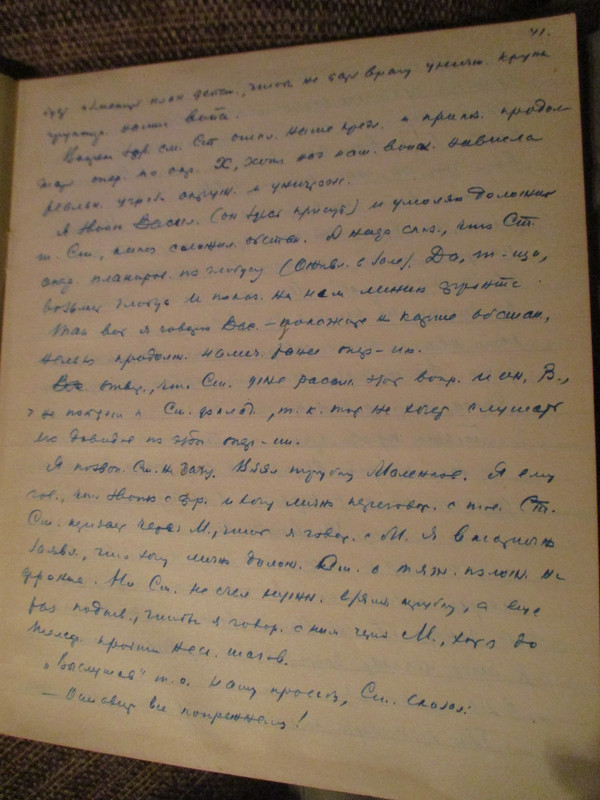 41.
план действ., чтоб не дать врагу уничт. крупн.
группир. наших войск.
В то время Ст. наше предл. и приказ. продол-
жать опер. по окр. Х, хотя над наш. войск. нависла
реальн. угроза окруж. и уничтож.
Я звоню Васил. (он здесь присутс.) и умоляю доложить
т. Ст., какая сложил. обстан. А надо сказ., что Ст.
опер. планиров. по глобусу (Оживл. в зале). Да, т-щи,
возьмет глобус и показ. на нем линию фронта.
Так вот я говорю Вас. – покажите на карте обстан.,
нельзя продолж. намеч. ранее опер-ию.
Вас. ответ., что Ст. уже рассм. этот вопр. и он, В.,
не пойдет к Ст. доклад., т. к. тот не хочет слушать
его доводов по этой опер-ии.
Я позвон. Ст. на дачу. Взял трубку Маленков. Я ему
гов., что звоню с фр. и хочу лично переговор. с тов. Ст.
Ст. передает через М., чтоб я говор. с М. Я вторично
заявл., что хочу лично долож. Ст. о тяж. полож. на
фронте. Но Ст. не счел нужн. взять трубку, а еще
раз подтв., чтобы я говор. с ним через М., хотя до
телеф. пройти неск. шагов.
„Выслушав" т. о. нашу просьбу, Ст. сказал:
– Оставить все по прежнему!